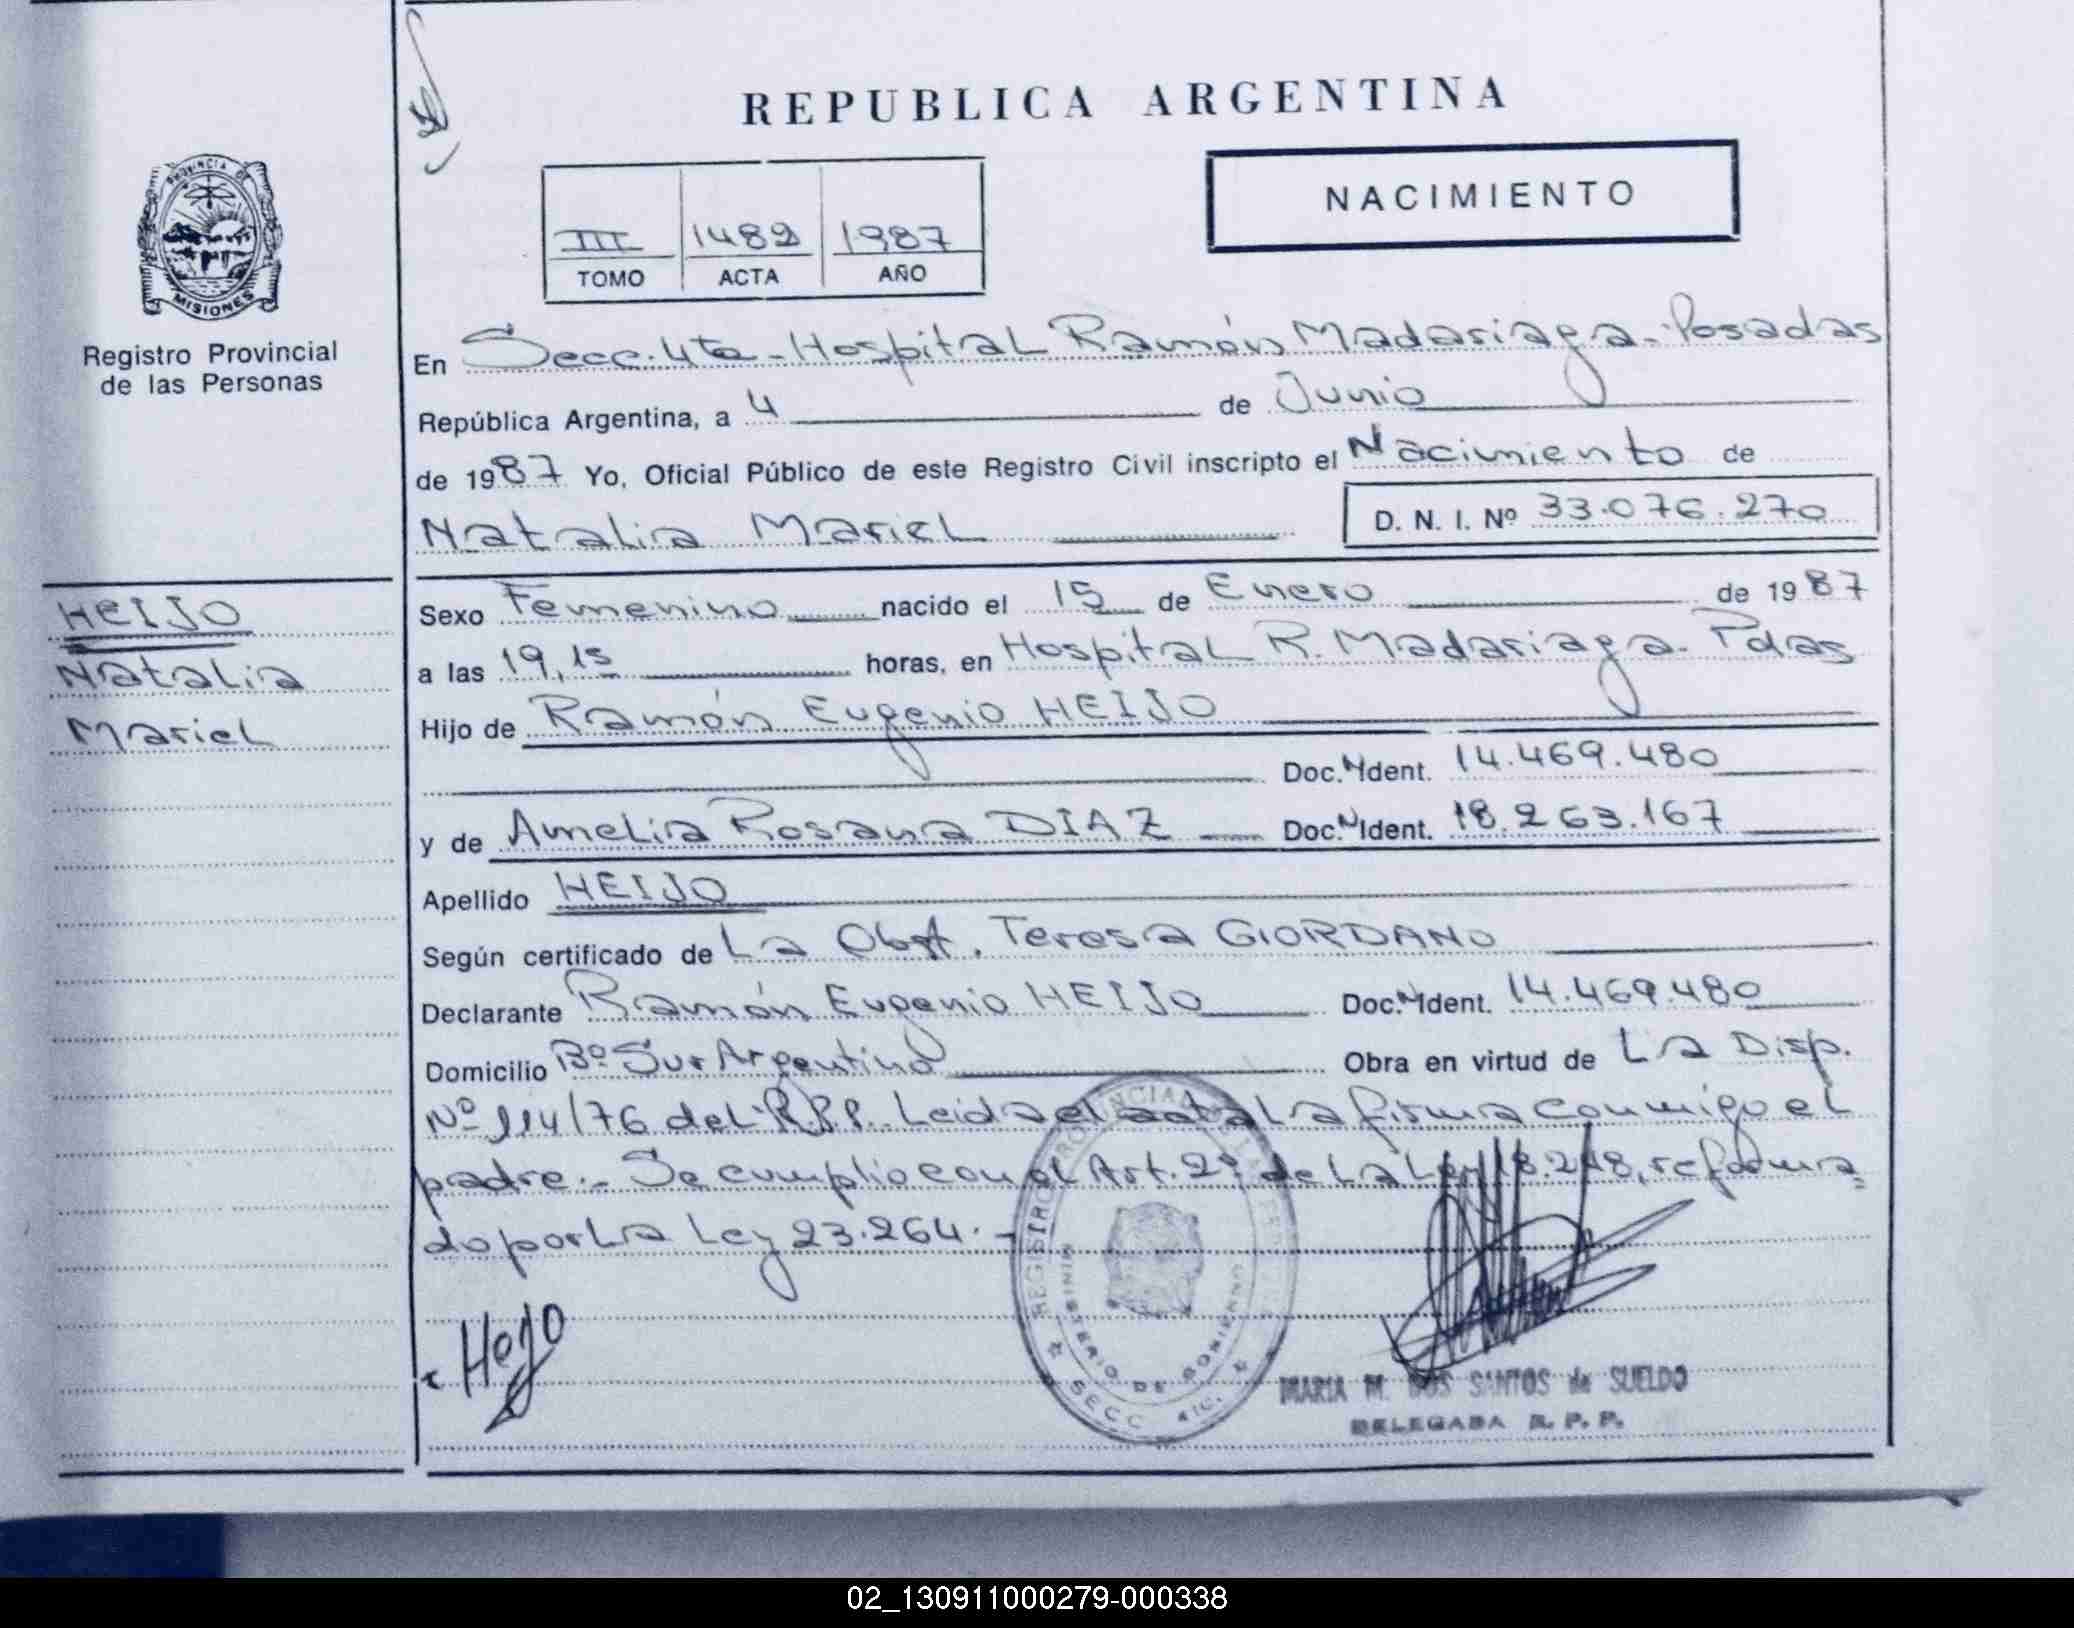 REPUBLICA ARGENTINA
NACIMIENTO
III 1482 1987
TOMO ACTA AÑO
PROVINCIA DE MISIONES
Registro Provincial
de las Personas
En Secc. 4ta - Hospital Ramón Madariaga - Posadas
República Argentina, a 4 de Junio
de 1987 Yo, Oficial Público de este Registro Civil inscripto el Nacimiento de
Natalia Mariel D. N. I. Nº 33.076.270
HEIJO
Natalia
Mariel
Sexo Femenino nacido el 15 de Enero de 1987
a las 19,15 horas, en Hospital R. Madariaga - Pdas
Hijo de Ramón Eugenio HEIJO
Doc. N Ident. 14.469.480
y de Amelia Rosana DIAZ Doc. N Ident. 18.263.167
Apellido HEIJO
Según certificado de La Obst. Teresa GIORDANO
Declarante Ramón Eugenio HEIJO Doc. N Ident. 14.469.480
Domicilio Bº Sur Argentino Obra en virtud de La Disp.
Nº 114/76 del R.P.P. Leida el acta La firma conmigo el
padre.- Se cumplio con el Art. 2º de La Ley 18.248, reforma
do por La Ley 23.264.-
Heijo
REGISTRO PROVINCIAL DE LAS PERSONAS
MINISTERIO DE GOBIERNO
SECC. 4TA.
MARIA M. DOS SANTOS de SUELDO
DELEGADA R. P. P.
02_130911000279-000338